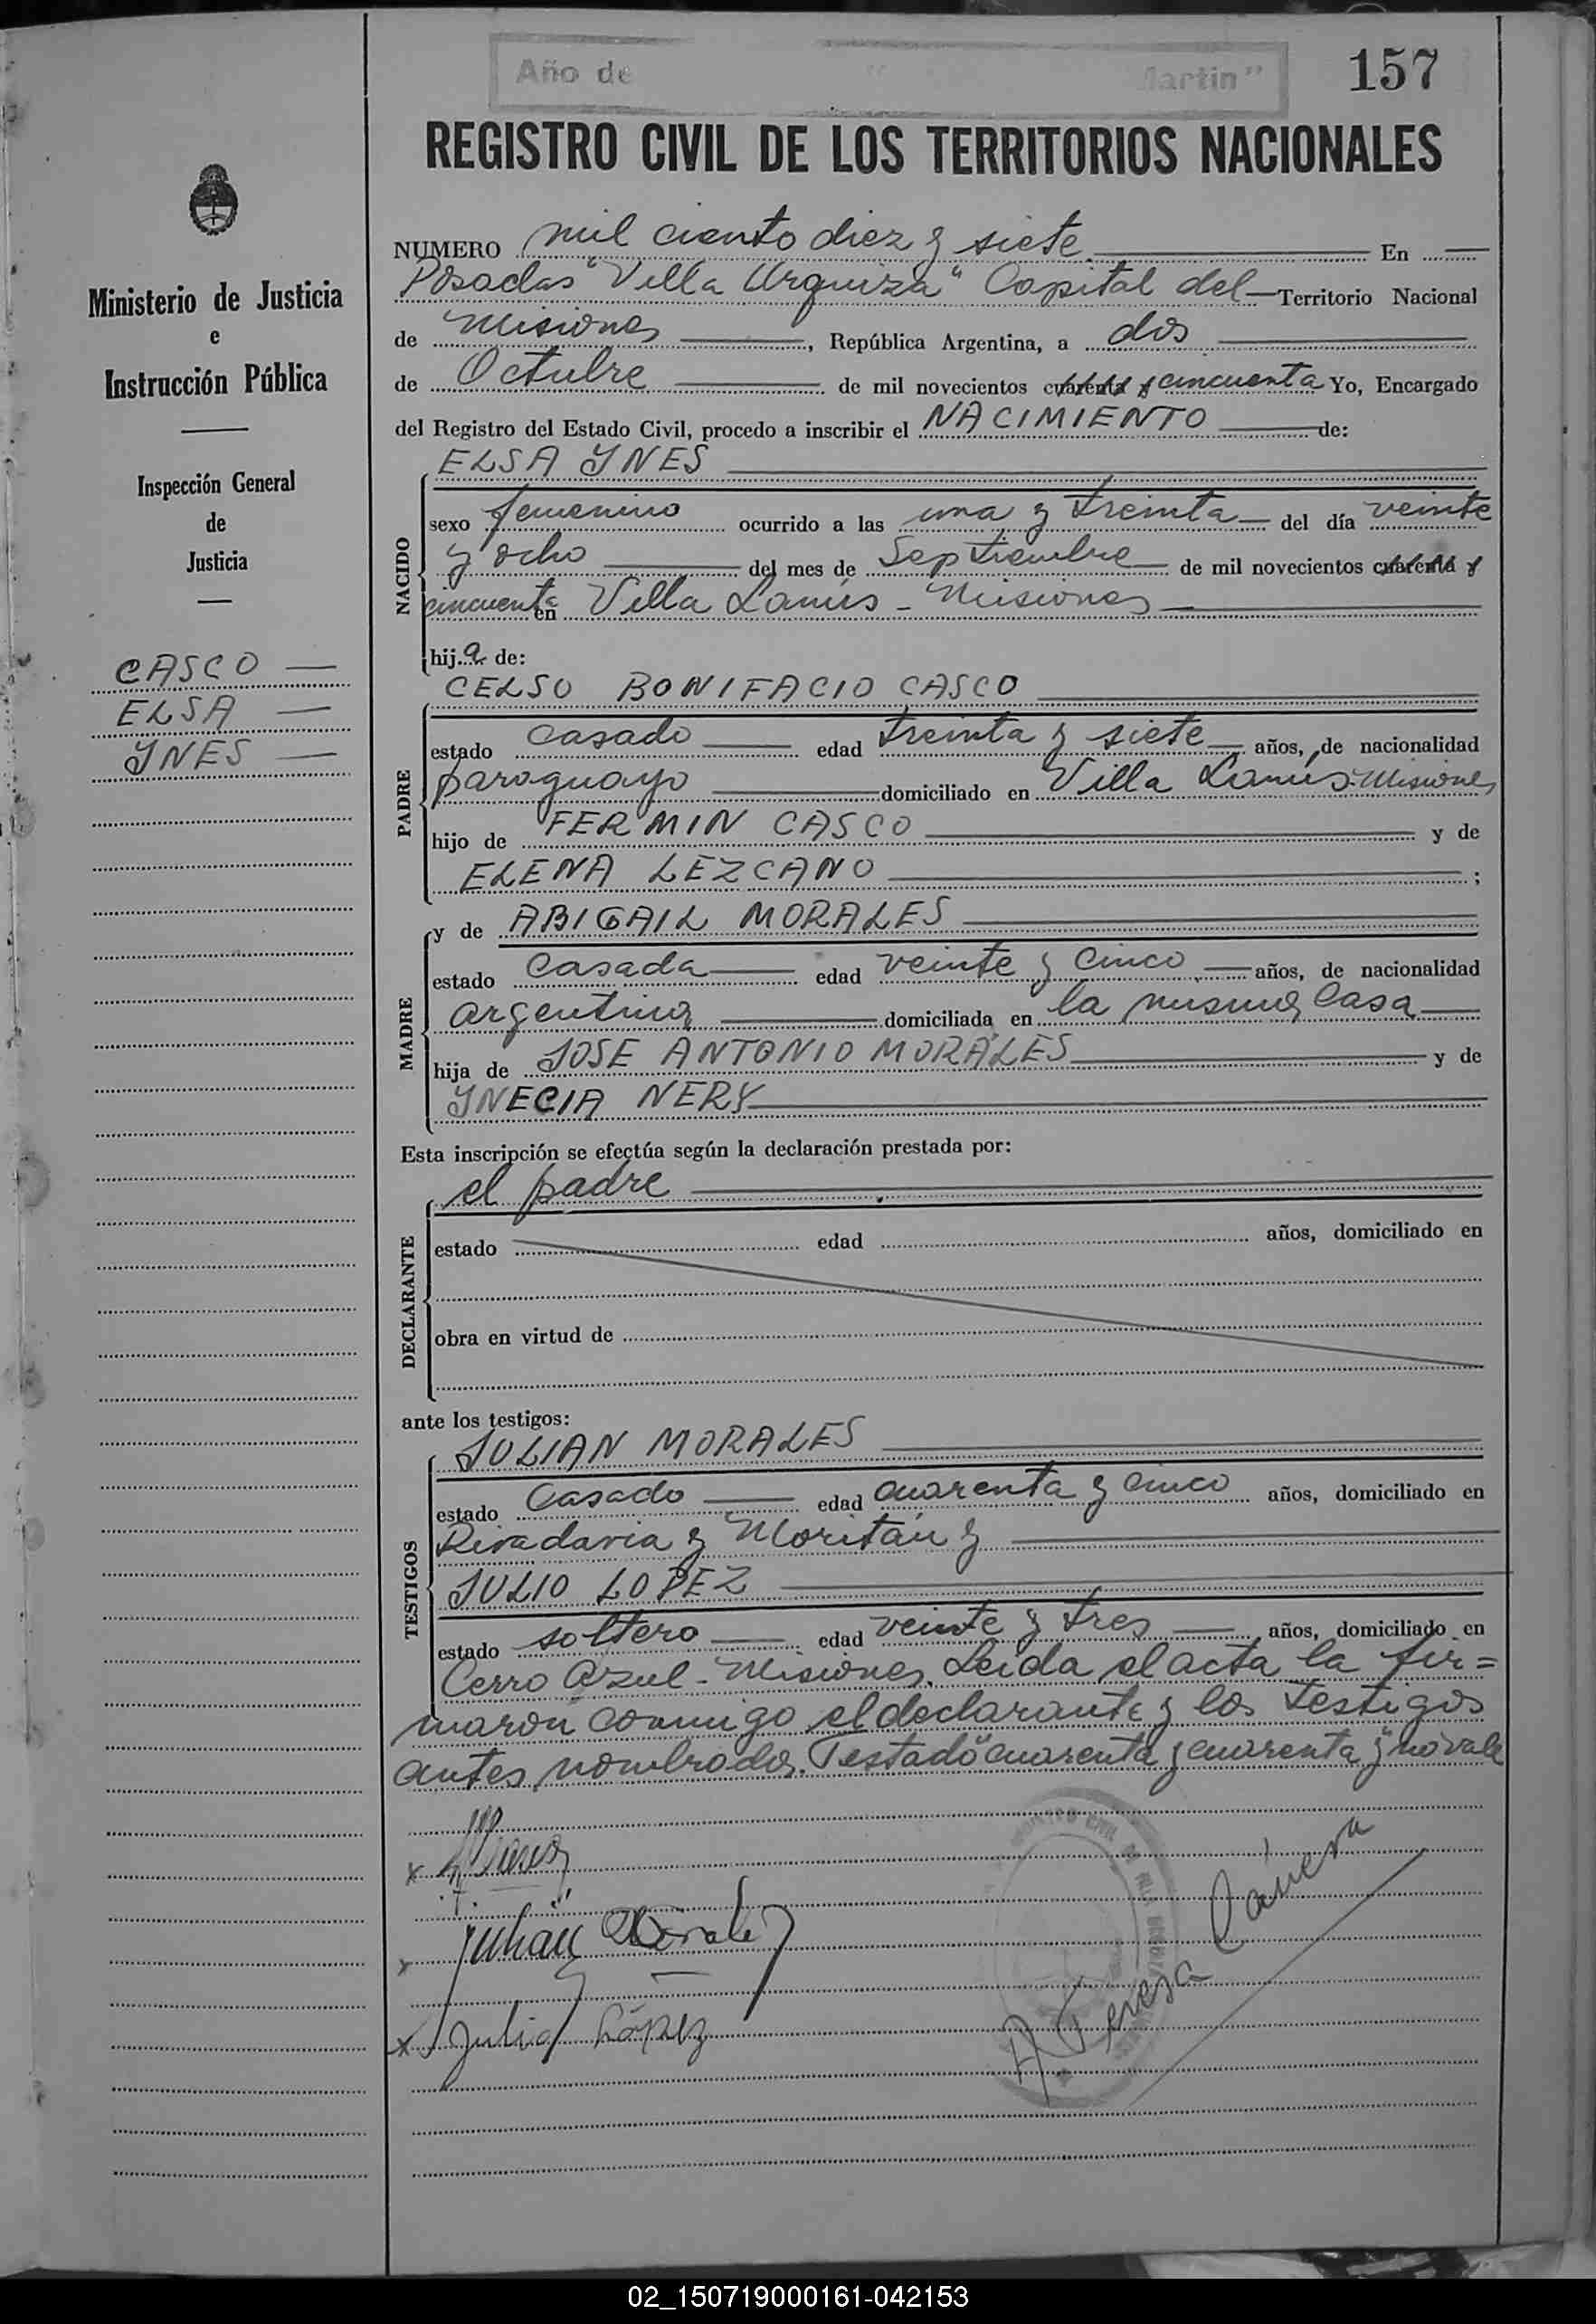 Año de " Martin"
157
REGISTRO CIVIL DE LOS TERRITORIOS NACIONALES
Ministerio de Justicia
e
Instrucción Pública
Inspección General
de
Justicia
CASCO
ELSA
YNES
NUMERO mil ciento diez y siete En
Posadas "Villa Urquiza" Capital del Territorio Nacional
de Misiones, República Argentina, a dos
de Octubre de mil novecientos cuarenta y cincuenta Yo, Encargado
del Registro del Estado Civil, procedo a inscribir el NACIMIENTO de:
NACIDO
ELSA YNES
sexo femenino ocurrido a las una y treinta del día veinte
y ocho del mes de Septiembre de mil novecientos cuarenta y
cincuenta en Villa Lanús - Misiones
hija de:
PADRE
CELSO BONIFACIO CASCO
estado casado edad treinta y siete años, de nacionalidad
paraguayo domiciliado en Villa Lanús-Misiones
hijo de FERMIN CASCO y de
ELENA LEZCANO ;
MADRE
y de ABIGAIL MORALES
estado Casada edad veinte y cinco años, de nacionalidad
argentina domiciliada en la misma Casa
hija de JOSE ANTONIO MORALES y de
YNECIA NERY
Esta inscripción se efectúa según la declaración prestada por:
DECLARANTE
el padre
estado edad años, domiciliado en
obra en virtud de
ante los testigos:
TESTIGOS
JULIAN MORALES
estado Casado edad cuarenta y cinco años, domiciliado en
Rivadavia y Moritán y
JULIO LOPEZ
estado soltero edad veinte y tres años, domiciliado en
Cerro Azul - Misiones. Leída el acta la fir=
maron conmigo el declarante y los testigos
antes nombrados. Testado "cuarenta y cuarenta y" no vale
x
x Julián Morales
x Julio López
A Teresa Cánesa
REGISTRO CIVIL DE
02_150719000161-042153